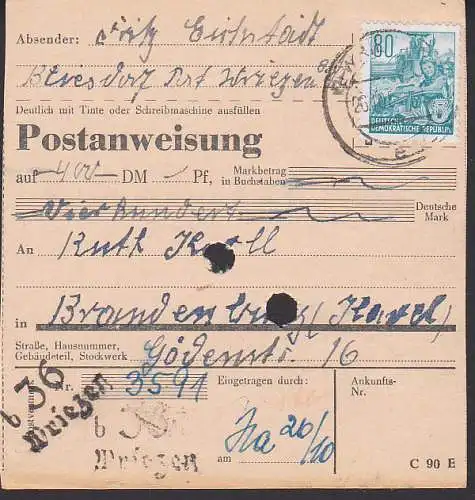 Absender: Fritz Eichstädt
Bliesdorf Post Wriezen
Deutlich mit Tinte oder Schreibmaschine ausfüllen
80
DEUTSCHE
DEMOKRATISCHE REPUBLIK
Postanweisung
auf 400 DM — Pf, Markbetrag in Buchstaben
Vierhundert Deutsche Mark
An Ruth Karll
in Brandenburg (Havel)
Straße, Hausnummer,
Gebäudeteil, Stockwerk Gödenstr. 16
Nr. 3591 Eingetragen durch: Ankunfts-Nr.
b 36
Wriezen
b 36
Wriezen
am 20/10
C 90 E